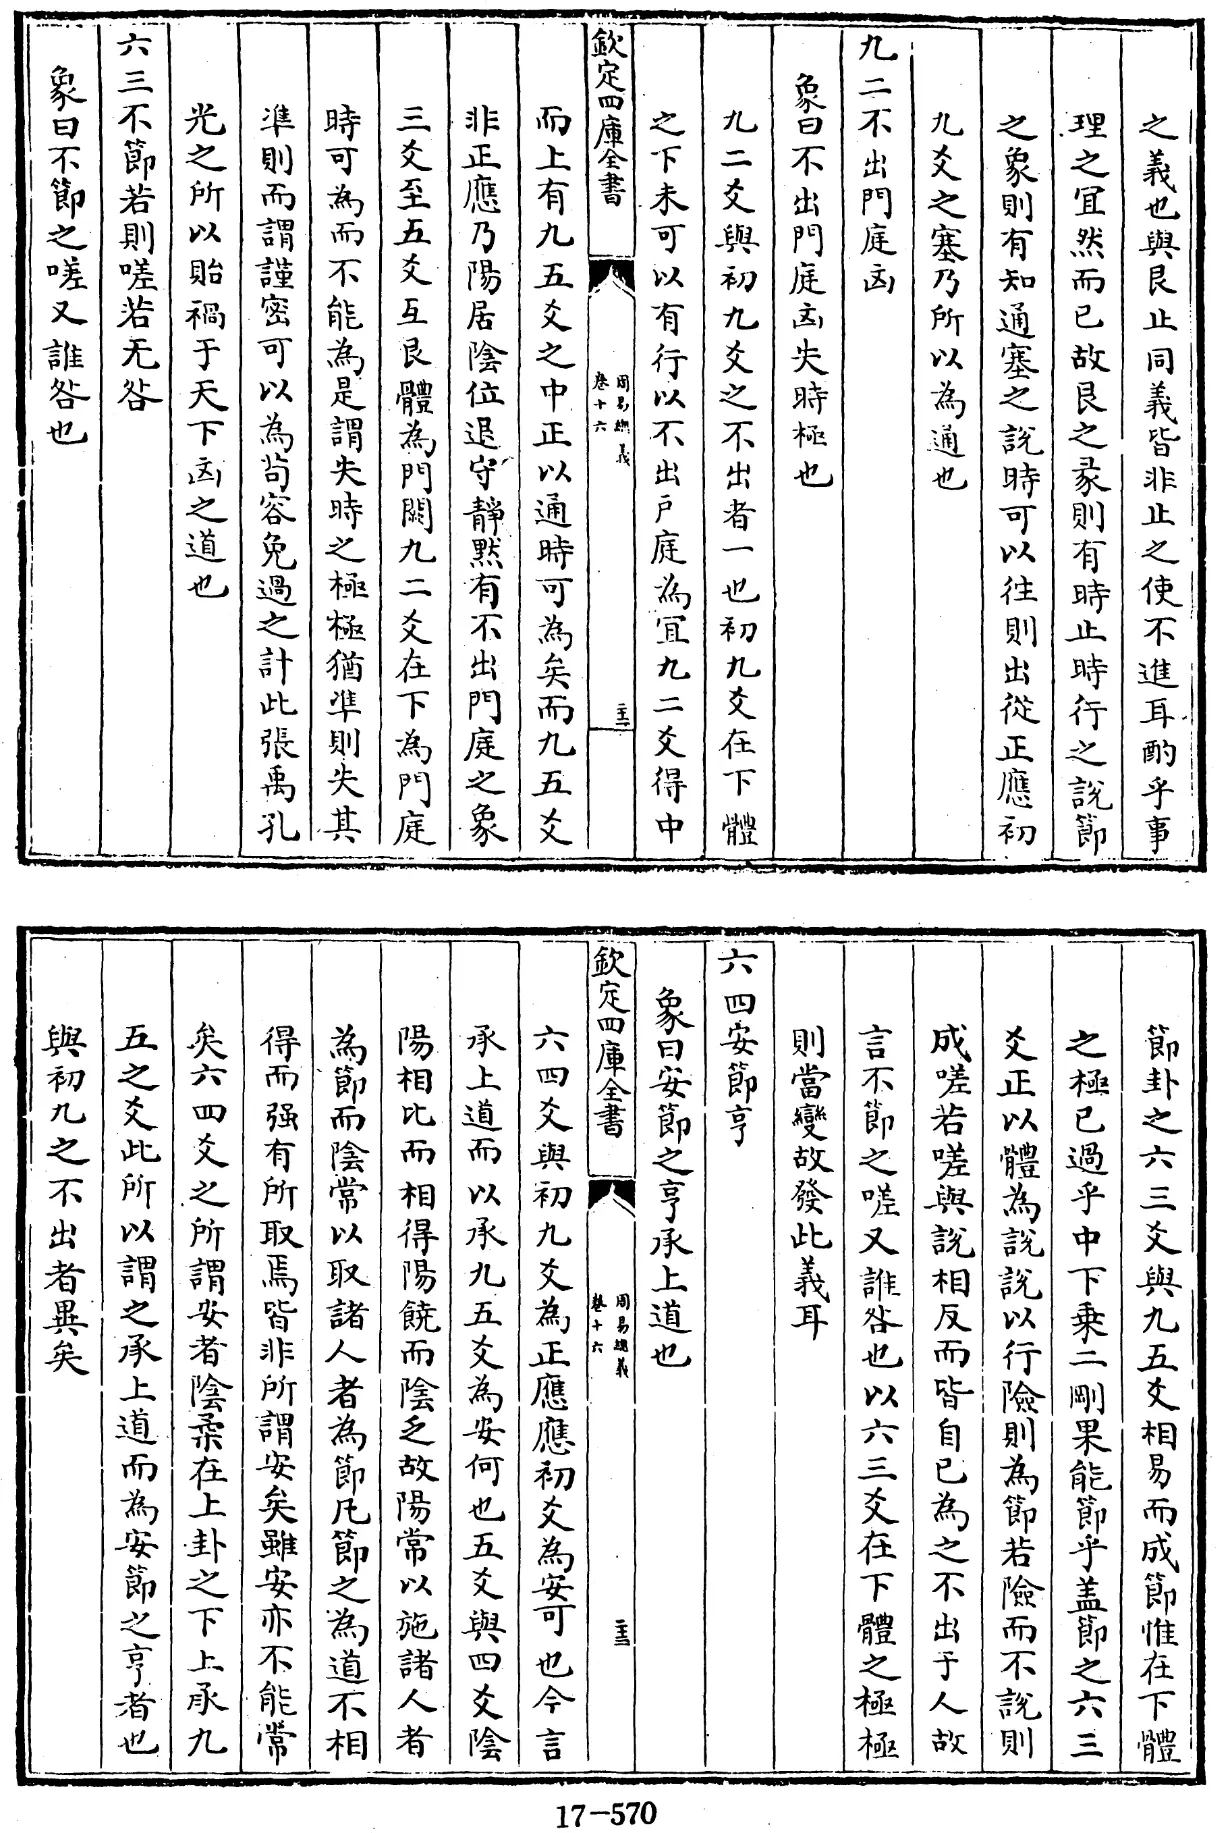 之義也與艮止同義皆非止之使不進耳酌乎事
理之宜然而已故艮之彖則有時止時行之說節
之象則有知通塞之說時可以往則出從正應初
九爻之塞乃所以為通也
九二不出門庭凶
象曰不出門庭凶失時極也
九二爻與初九爻之不出者一也初九爻在下體
之下未可以有行以不出戶庭為宜九二爻得中
欽定四庫全書
周易總義
卷十六
二十二
而上有九五爻之中正以通時可為矣而九五爻
非正應乃陽居陰位退守靜默有不出門庭之象
三爻至五爻互艮體為門闕九二爻在下為門庭
時可為而不能為是謂失時之極極猶準則失其
準則而謂謹密可以為茍容免過之計此張禹孔
光之所以貽禍于天下凶之道也
六三不節若則嗟若无咎
象曰不節之嗟又誰咎也
節卦之六三爻與九五爻相易而成節惟在下體
之極已過乎中下乗二剛果能節乎盖節之六三
爻正以體為說說以行險則為節若險而不說則
成嗟若嗟與說相反而皆自已為之不出于人故
言不節之嗟又誰咎也以六三爻在下體之極極
則當變故發此義耳
六四安節亨
象曰安節之亨承上道也
欽定四庫全書
周易總義
卷十六
二十三
六四爻與初九爻為正應應初爻為安可也今言
承上道而以承九五爻為安何也五爻與四爻陰
陽相比而相得陽饒而陰乏故陽常以施諸人者
為節而陰常以取諸人者為節凡節之為道不相
得而强有所取焉皆非所謂安矣雖安亦不能常
矣六四爻之所謂安者陰柔在上卦之下上承九
五之爻此所以謂之承上道而為安節之亨者也
與初九之不出者異矣
17-570